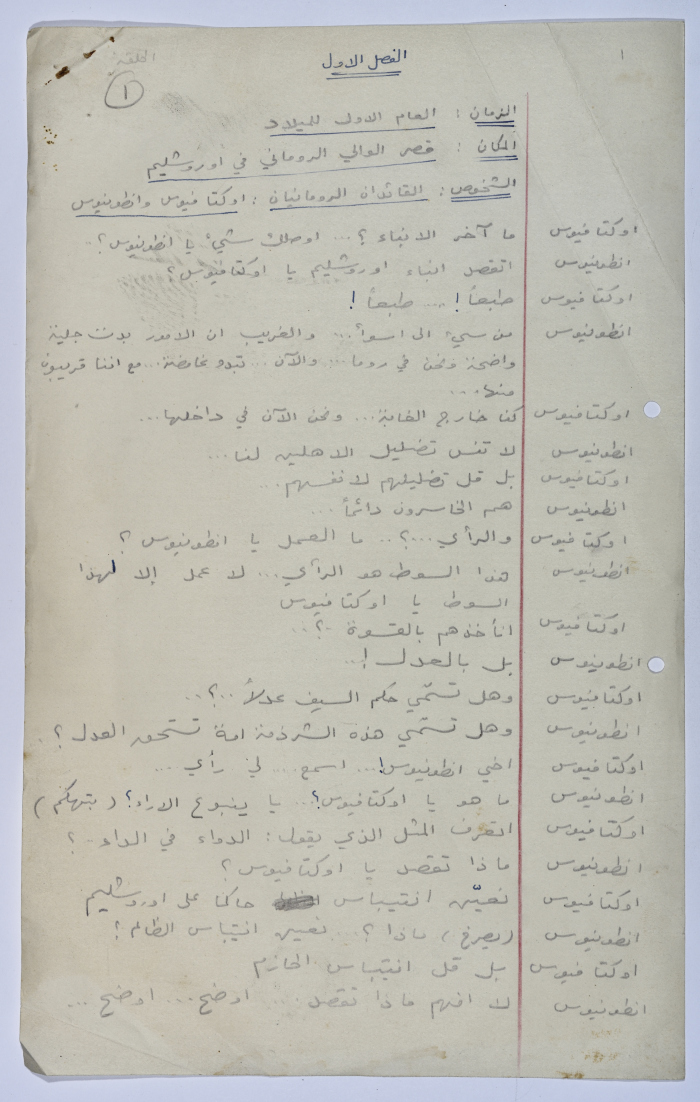 ١
الفصل الاول
الحلقة
١
الزمان : العام الاول للميلاد
المكان : قصر الوالي الروماني في اوروشليم
الشخوص : القائدان الرومانيان : اوكتافيوس وانطونيوس
اوكتافيوس ما آخر الانباء ؟ ... اوصلك شيء يا انطونيوس ؟ ..
انطونيوس اتقصد انباء اوروشليم يا اوكتافيوس ؟
اوكتافيوس طبعاً ! .... طبعاً !
انطونيوس من سيء الى اسوأ ... والغريب ان الامور بدت جلية
واضحة ونحن في روما ... والآن ... تبدو غامضة .. مع اننا قريبون
منها ...
اوكتافيوس كنا خارج الغابة ... ونحن الآن في داخلها ...
انطونيوس لا تنس تضليل الاهلين لنا ...
اوكتافيوس بل قل تضليلهم لانفسهم ...
انطونيوس هم الخاسرون دائماً ...
اوكتافيوس والرأي ...؟ .. ما العمل يا انطونيوس ؟
انطونيوس هذا السوط هو الرأي ... لا عمل إلا لهذا
السوط يا اوكتافيوس
اوكتافيوس انأخذهم بالقسوة ..؟ ..
انطونيوس بل بالعدل ! ..
اوكتافيوس وهل تسمّي حكم السيف عدلاً ..؟ ..
انطونيوس وهل تسمّي هذه الشرذمة امة تستحق العدل ؟ .
اوكتافيوس اخي انطونيوس ! ... اسمع .... لي رأي ....
انطونيوس ما هو يا اوكتافيوس ؟ ... يا ينبوع الاراء ؟ ( بتهكم )
اوكتافيوس اتعرف المثل الذي يقول : الدواء في الداء .. ؟
انطونيوس ماذا تقصد يا اوكتافيوس ؟
اوكتافيوس نعيّن انتيباس حاكما على اوروشليم
انطونيوس ( يصرخ ) ماذا ؟ ... نعين انتيباس الظالم ؟
اوكتافيوس بل قل انتيباس الحازم
انطونيوس لا افهم ماذا تقصد .... اوضح ... اوضح ...